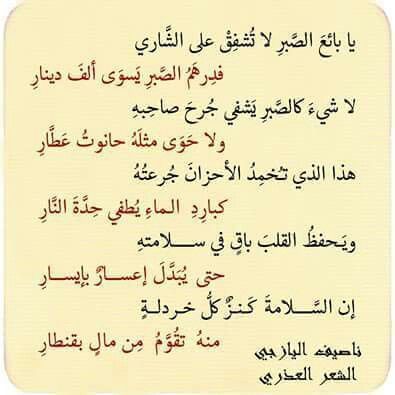 يا بائعَ الصَّبرِ لا تُشفِقْ على الشَّاري
فدِرهَمُ الصَّبرِ يَسوَى ألفَ دينارِ
لا شيءَ كالصَّبرِ يَشفي جُرحَ صاحبِهِ
ولا حَوَى مثلَهُ حانوتُ عَطَّارِ
هذا الذي تُخمِدُ الأحزانَ جُرعتُهُ
كبارِدِ الـماءِ يُطفي حِدَّةَ النَّارِ
ويَحفظُ القلبَ باقٍ في سـلامتهِ
حتى يُبَدَّلَ إعسـارٌ بإيسـارِ
إن السَّـلامةَ كَـنـزٌ كلُّ خـردلـةٍ
منهُ تقُوَّمُ مِن مالٍ بقنطارِ
ناصيف اليازجي
الشعر العذري